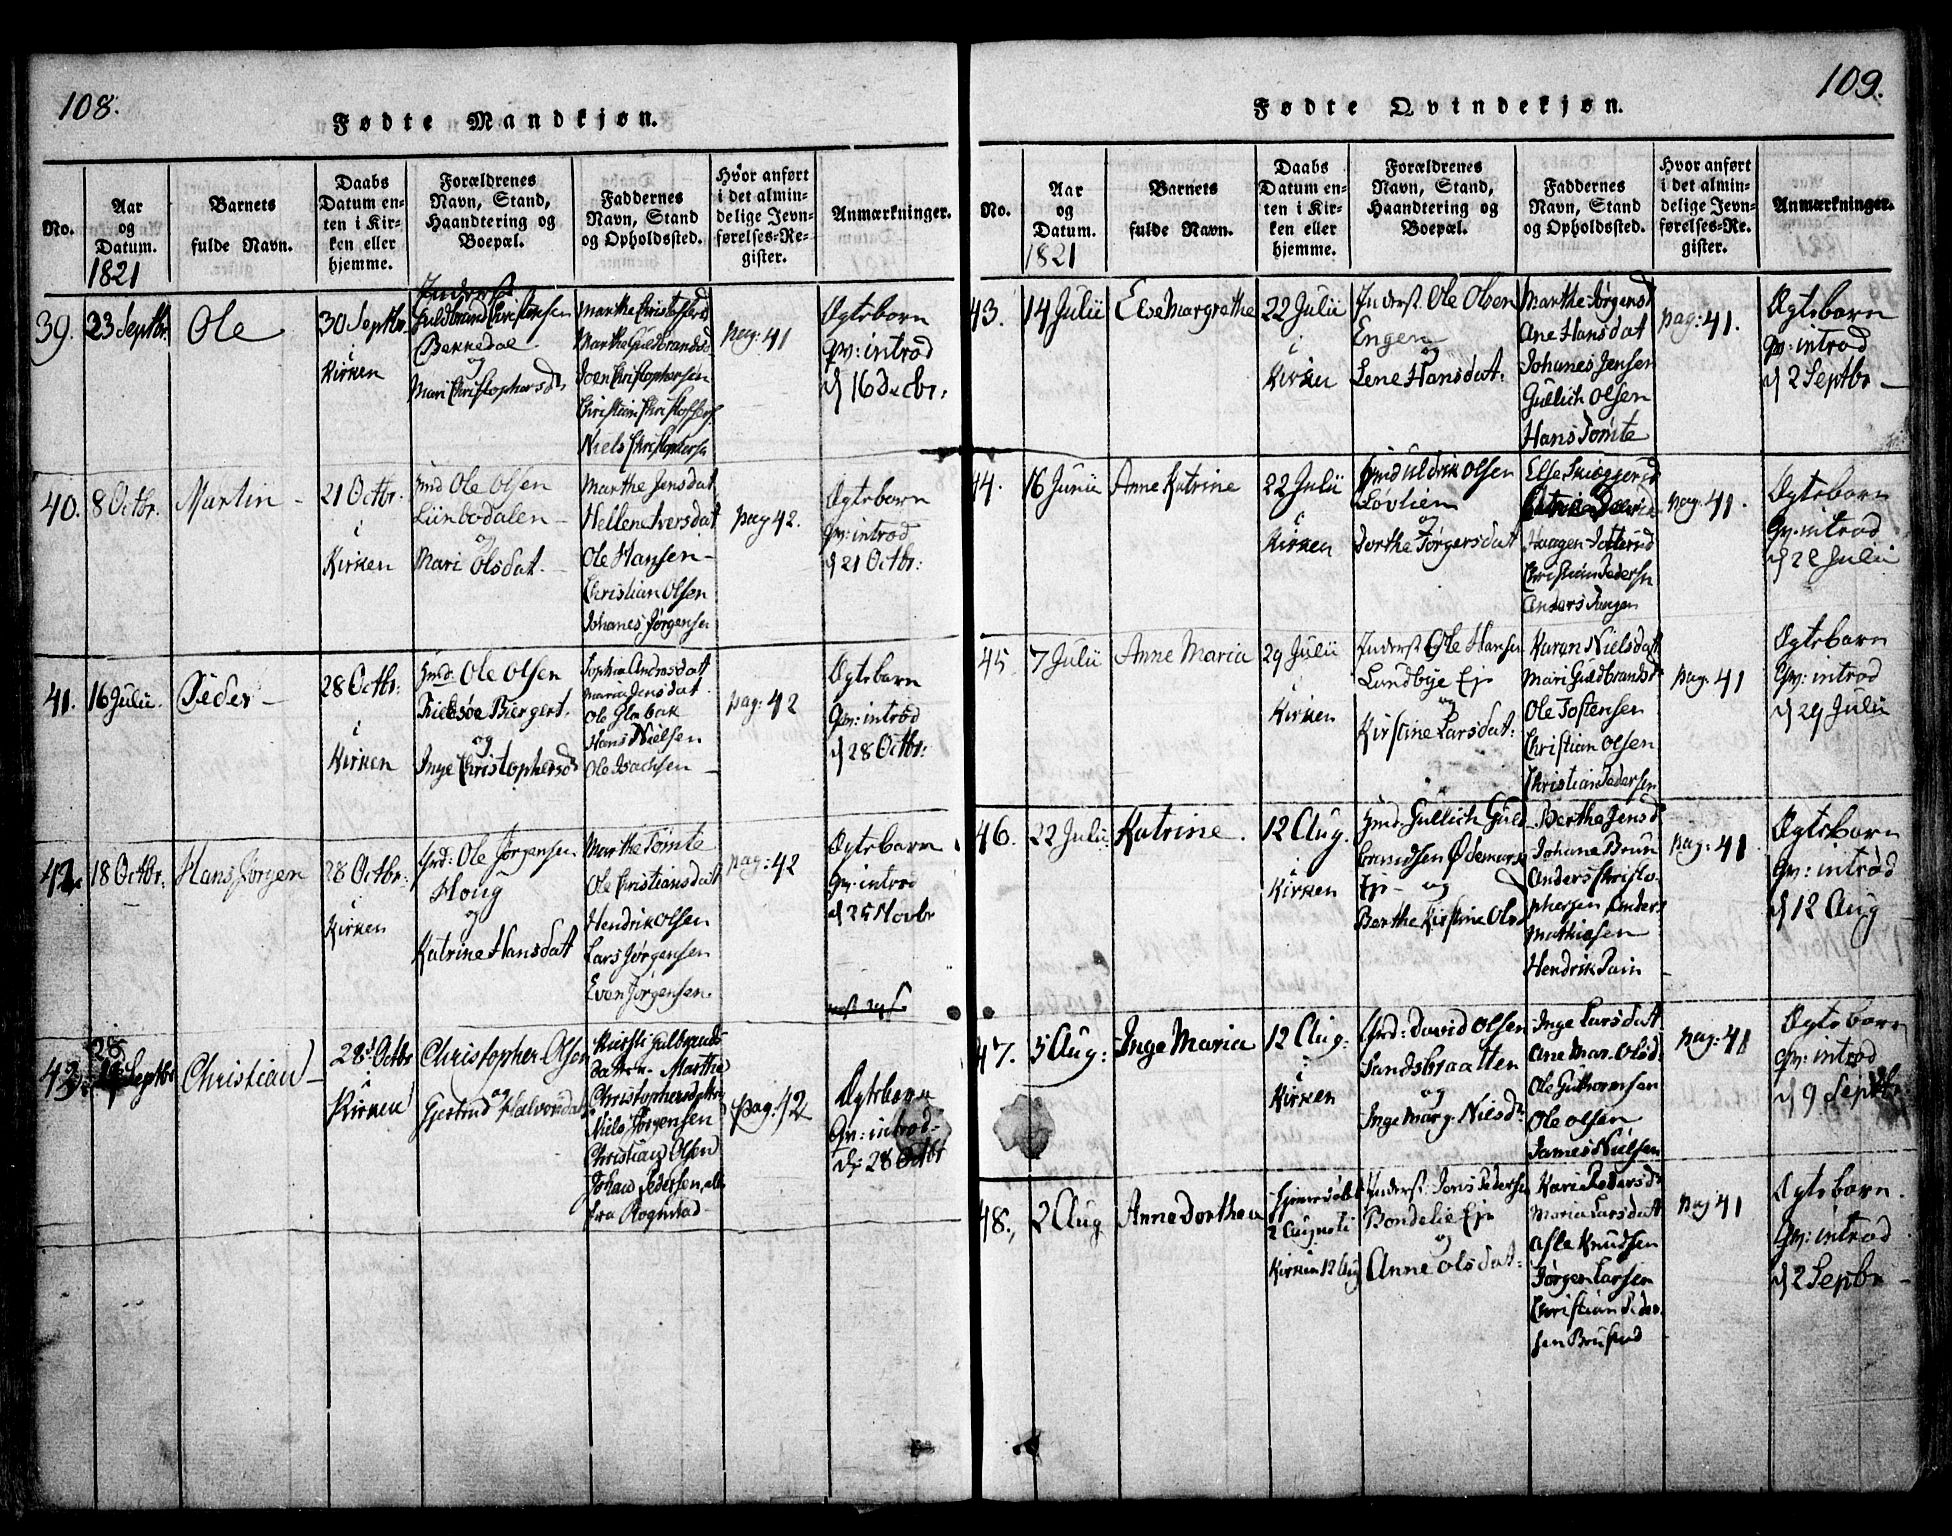 108.
Fødte Mandkjøn.
No.
Aar
og
Datum.
1821
Barnets
fulde Navn.
Daabs
Datum en-
ten i Kir-
ken eller
hjemme.
Forældrenes
Navn, Stand,
Haandtering og
Boepæl.
Faddernes
Navn, Stand
og Opholdssted.
Hvor anført
i det almin-
delige Jevn-
førelses-Re-
gister.
Anmærkninger.
39.
23 Septbr.
Ole
30 Septbr.
i
Kirken
Inderst
Guldbrand Christensen
Bekkedal
og
Mari Christophersd
Marthe Christophersd
Marthe Guldbrandsd
Joen Christophersen
Christian Christoffers.
Niels Christophersen
pag: 41
Ægtebarn
Qv: introd
d 16 Decbr:
40.
8 Octbr.
Martin
21 Octbr.
i
Kirken
Hmd Ole Olsen
og
Mari Olsdat.
Marthe Jensdat
Hellene Iversdat
Ole Hansen
Christian Olsen
Johanes Jørgensen
pag 42.
Ægtebarn
Qv: introd
d 21 Octbr:
41.
16 Julii.
Peder
28 Octbr:
i
Kirken
Hmd: Ole Olsen
og
Inge Christophersd
Sophia Andersdat
Maria Jensdat
Ole Glabak
Hans Nielsen
Ole Isachsen
pag: 42
Ægtebarn
Qv: introd
d 28 Octbr:
42.
18 Octbr.
Hans Jørgen
28 Octbr:
i
Kirken
Grd: Ole Jørgensen
Houg
og
Katrine Hansdat
Marthe Tomte
Ole Christiansdat
Hendrik Olsen
Lars Jørgensen
Even Jørgensen.
pag: 42
Ægtebarn
Qv: introd
d 25 Novbr
43.
28
Septbr
Christian
28d Octbr
i
Kirken
Christopher Olsen
og
Gjertrud Halvorsdat
Kirsti Gulbrands-
datter Marthe
Christophersdatter
Niels Jørgensen
Christian Olsen
Johan Pedersen, alle
fra Rognstad
pag: 42
Ægtebarn
Qv: introd.
d: 28 Octbr
109.
Fødte Qvindekjøn.
No.
Aar
og
Datum.
1821
Barnets
fulde Navn.
Daabs
Datum en-
ten i Kir-
ken eller
hjemme.
Forældrenes
Navn, Stand,
Haandtering og
Boepæl.
Faddernes
Navn, Stand
og Opholdssted.
Hvor anført
i det almin-
delige Jevn-
førelses-Re-
gister.
Anmærkninger.
43.
14 Julii
Else Margrethe
22 Julii
i
Kirken
Inderst. Ole Olsen
Engen
og
Lene Hansdat:
Marthe Jørgensd
Ane Hansdat
Johanes Jensen
Gullich Olsen
Hans Tomte
pag: 41.
Ægtebarn
Qv: introd
d 2 Septbr
44.
16 Junii
Anne Katrine
22 Julii
i
Kirken
Hmd Uldrik Olsen
Lovlien
og
Dorthe Jørgersdat
Haagen
Christian Pedersen
Anders
pag: 41.
Ægtebarn
Qv: introd
d 22 Julii
45
7 Julii
Anne Maria
29 Julii
i
Kirken
Inderst Ole Hansen
Lundbye Ej
og
Kirstine Larsdat:
Karen Nielsdat
Mari Guldbrandsd
Ole Tostensen
Christian Olsen
Christian Pedersen
pag: 41
Ægtebarn
Qv: introd
d 29 Julii
46.
22 Julii
Katrine.
12 Aug.
i
Kirken
Hmd: Gullich Guld
brandsen Ødemark
Ej og
Berthe Kirstine Olsd
Berthe Jensd
Johane Brun
Anders Christo-
phersen Anders
Mathiesen
Hendrik
pag: 41.
Ægtebarn
Qv: introd
d 12 Aug
47.
5 Aug:
Inge Maria
12 Aug:
i
Kirken
Grd: David Olsen
Sandsbraatten
og
Inge Marg. Nilsd
Inge Larsdat
Ane Mar. Olsd.
Ole Guthormsen
Ole Olsen
James Nielsen
pag: 41
Ægtebarn
Qv: introd
d 9 Septbr
48.
2 Aug
Anne Dorthea
Hjemmedøbt
2 August i
Kirken 12 Aug
Inderst: Jens Pedersen
Bondelie Ej
og
Anne Olsdat:
Kari Pedersd
Maria Larsdat
Asle Knudsen
Jørgen Larsen
Christian Peder-
sen Brusrud
pag 41
Ægtebarn.
Qv: introd
d 2 Sepbr